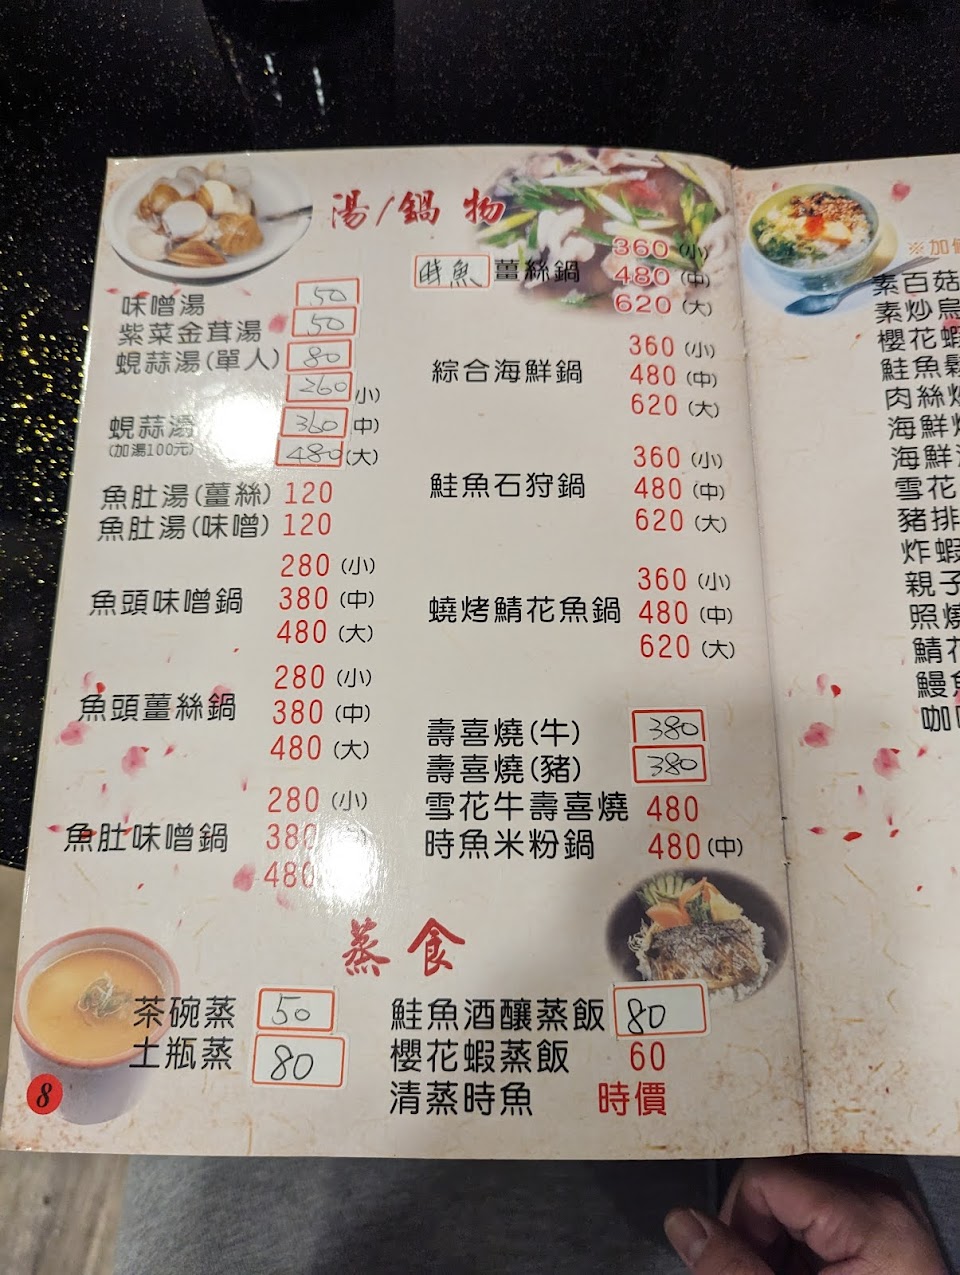 湯/鍋 物
味噌湯 50
紫菜金茸湯 50
蜆蒜湯(單人) 80
260 小)
蜆蒜湯 360 中)
(加湯100元) 480 (大)
魚肚湯(薑絲) 120
魚肚湯(味噌) 120
280 (小)
魚頭味噌鍋 380 (中)
480 (大)
280 (小)
魚頭薑絲鍋 380 (中)
480 (大)
280 (小)
魚肚味噌鍋 380
480
時魚 薑絲鍋 360 (小)
480 (中)
620 (大)
360 (小)
綜合海鮮鍋 480 (中)
620 (大)
360 (小)
鮭魚石狩鍋 480 (中)
620 (大)
360 (小)
蟯烤鯖花魚鍋 480 (中)
620 (大)
壽喜燒(牛) 380
壽喜燒(豬) 380
雪花牛壽喜燒 480
時魚米粉鍋 480 (中)
蒸食
茶碗蒸 50
土瓶蒸 80
鮭魚酒釀蒸飯 80
櫻花蝦蒸飯 60
清蒸時魚 時價
8
※加
素百菇
素炒烏
櫻花蝦
鮭魚鬆
肉絲炒
海鮮炒
海鮮
雪花
豬排
炸蝦
親子
照燒
鯖花
鰻魚
咖